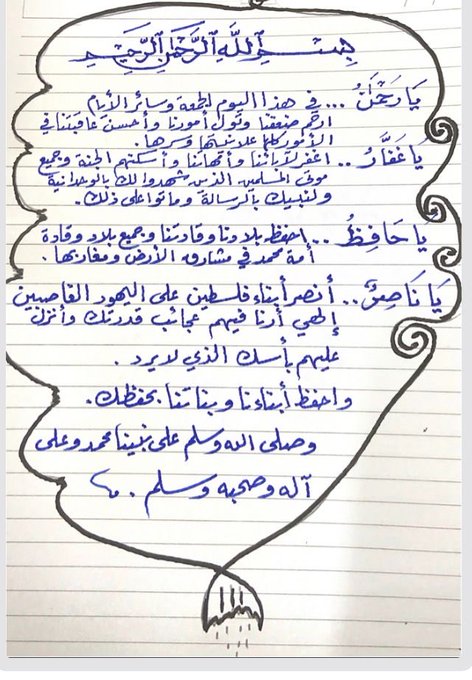 بِسْمِ اللَّهِ الرَّحْمَنِ الرَّحِيمِ
يَا رَحْمَنُ ... في هذا اليوم الجمعة وسائر الأيام
ارحم ضعفنا وتول أمورنا وأحسن عاقبتنا في
الأمور كلها علانيتها وسرها.
يَا غَفَّارُ .. اغفر لآبائنا وأمهاتنا وأسكنهم الجنة وجميع
موتى المسلمين الذين شهدوا لك بالوحدانية
ولنبيك بالرسالة وماتوا على ذلك.
يَا حَافِظُ .. احفظ بلادنا وقادتنا وجميع بلاد وقادة
أمة محمد في مشارق الأرض ومغاربها.
يَا نَاصِرُ .. أنصر أبناء فلسطين على اليهود الغاصبين
إلهي أرنا فيهم عجائب قدرتك وأنزل
عليهم بأسك الذي لا يرد.
واحفظ أبناءنا وبناتنا بحفظك.
وصلى الله وسلم على نبينا محمد وعلى
آله وصحبه وسلم ..